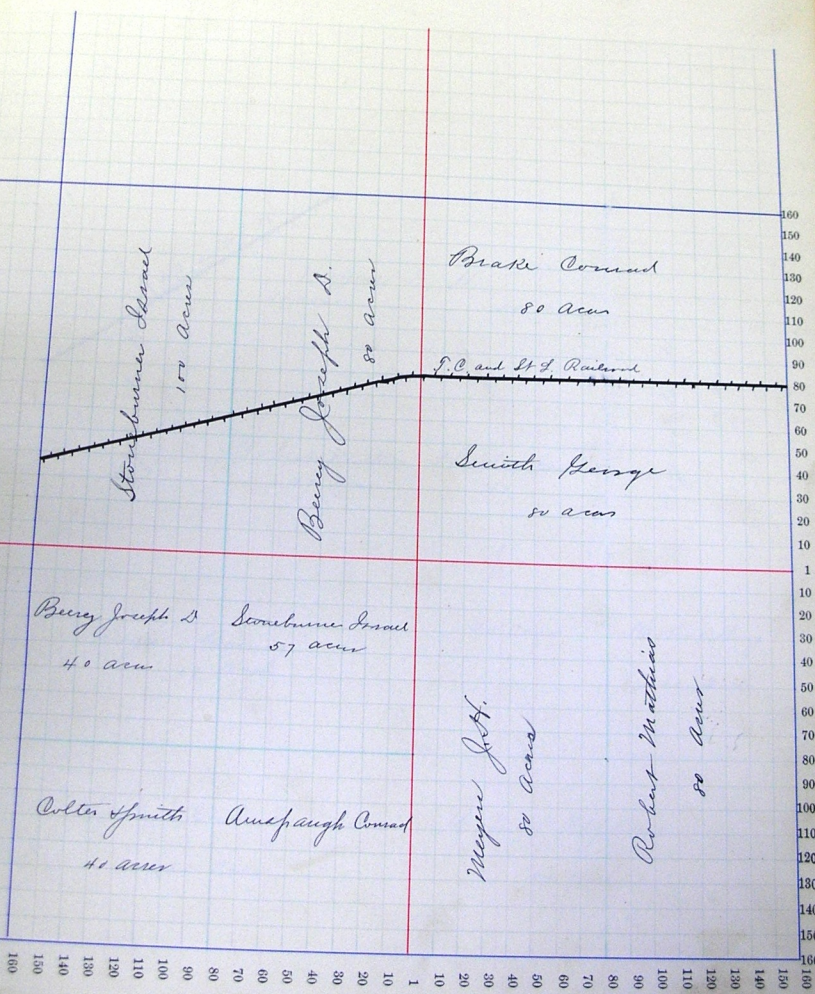 Stoneburner Israel
100 Acres
Beery Joseph D.
80 acres
Brake Conrad
80 acres
T. C. and St L Railroad
Smith George
80 acres
Beery Joseph D
40 acres
Stoneburner Israel
57 acres
Colter Smith
40 acres
Amspaugh Conrad
Meyers J. H.
80 Acres
Robert Mathias
80 Acres
160
150
140
130
120
110
100
90
80
70
60
50
40
30
20
10
1
10
20
30
40
50
60
70
80
90
100
110
120
130
140
150
160
160 150 140 130 120 110 100 90 80 70 60 50 40 30 20 10 1 10 20 30 40 50 60 70 80 90 100 110 120 130 140 150 160